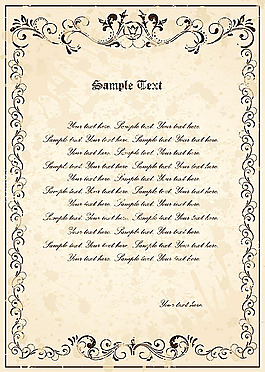 Sample Text
Your text here. Sample text. Your text here.
Sample text. Your text here. Sample text. Your text here.
Your text here. Sample text. Your text here.
Sample text. Your text here. Sample text. Your text here.
Your text here. Sample text. Your text here.
Sample text. Your text here. Sample text. Your text here.
Your text here. Sample text. Your text here.
Sample text. Your text here. Sample text. Your text here.
Your text here. Sample text. Your text here.
Sample text. Your text here. Sample text. Your text here.
Your text here. Sample text. Your text here.
Your text here.